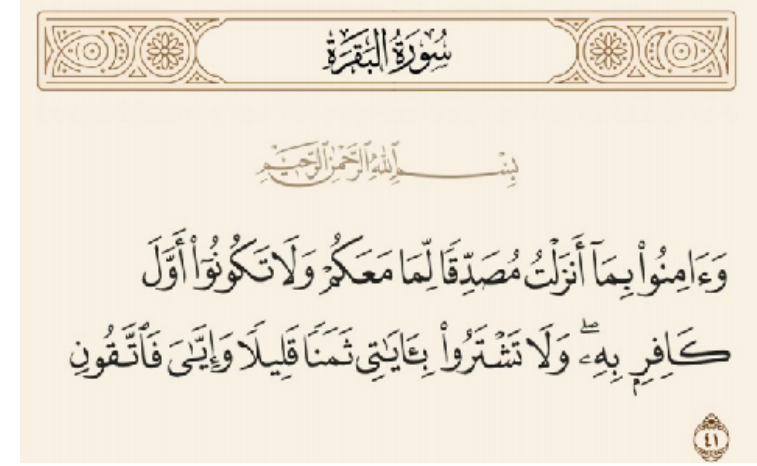 سُورَةُ الْبَقَرَةِ
بِسْمِ ٱللَّهِ ٱلرَّحْمَٰنِ ٱلرَّحِيمِ
وَءَامِنُوا۟ بِمَآ أَنزَلْتُ مُصَدِّقًا لِّمَا مَعَكُمْ وَلَا تَكُونُوٓا۟ أَوَّلَ
كَافِرٍۭ بِهِۦ ۖ وَلَا تَشْتَرُوا۟ بِـَٔايَـٰتِى ثَمَنًا قَلِيلًا وَإِيَّـٰىَ فَٱتَّقُونِ
٤١